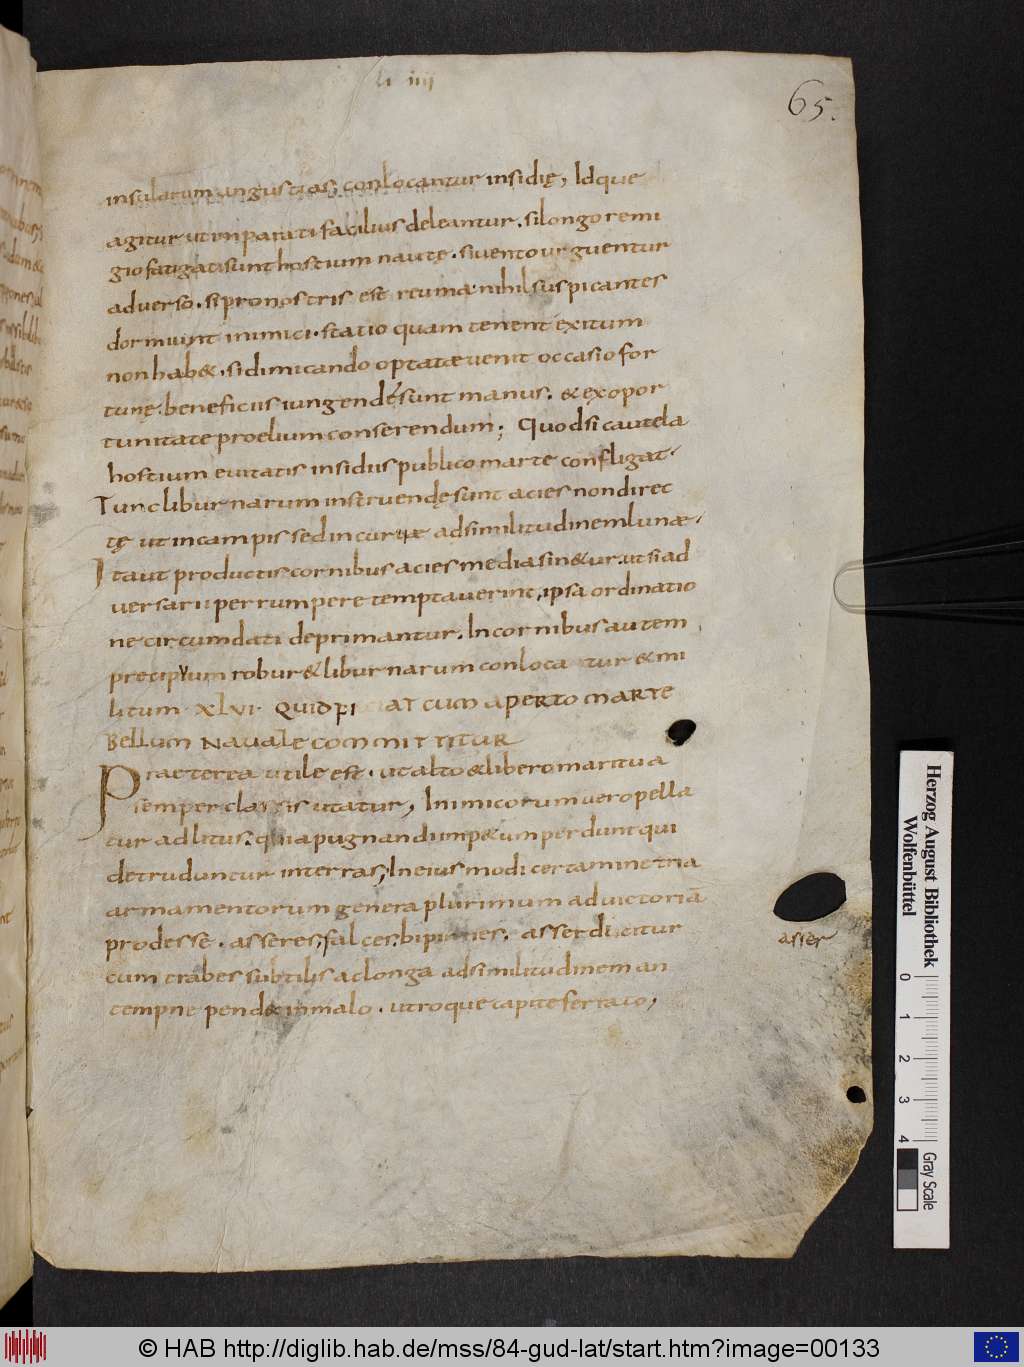 li iiii
65.
insularum angustias; conlocantur insidię, Idque
agitur ut inparati facilius deleantur. si longo remi
gio fatigati sunt hostium nautę. si vento urguentur
adverso. si pro nostris est reuma. nihil suspicantes
dormiunt inimici. statio quam tenent exitum
non hab&. si dimicandi optatae venit occasio for
tunę. beneficiis iungendę sunt manus. & ex opor
tunitate proelium conserendum; Quod si cautela
hostium evitatis insidiis publico marte confligat.
Tunc libur narum instruendę sunt acies non direc
tę ut in campis sed incurvae ad similitudinem lunae.
Ita ut productis cornibus acies media sin&ur. ut si ad
versarii perrumpere temptaverint, ipsa ordinatio
ne circumdati deprimantur. In cornibus autem
precipvum robur & libur narum conloca tur & mi
litum. XLVI. QUID FI AT CUM APERTO MARTE
BELLUM NAVALE COMMITTITUR
Praeterea utile est. ut alto & libero mari tua
semper classis utatur, Inimicorum vero pella
tur ad litus. quia pugnandi imp&um perdunt qui
detruduntur in terras; In eiusmodi certamine tria
armamentorum genera plurimum ad victoriā
prodesse. asseres, falces, bipinnes. asser dicitur
cum trabes subtilis ac longa ad similitudinem an
tempne pend& in malo. utroque capite ferrato,
asser
Herzog August Bibliothek
Wolfenbüttel
0 1 2 3 4
Gray Scale
© HAB http://diglib.hab.de/mss/84-gud-lat/start.htm?image=00133